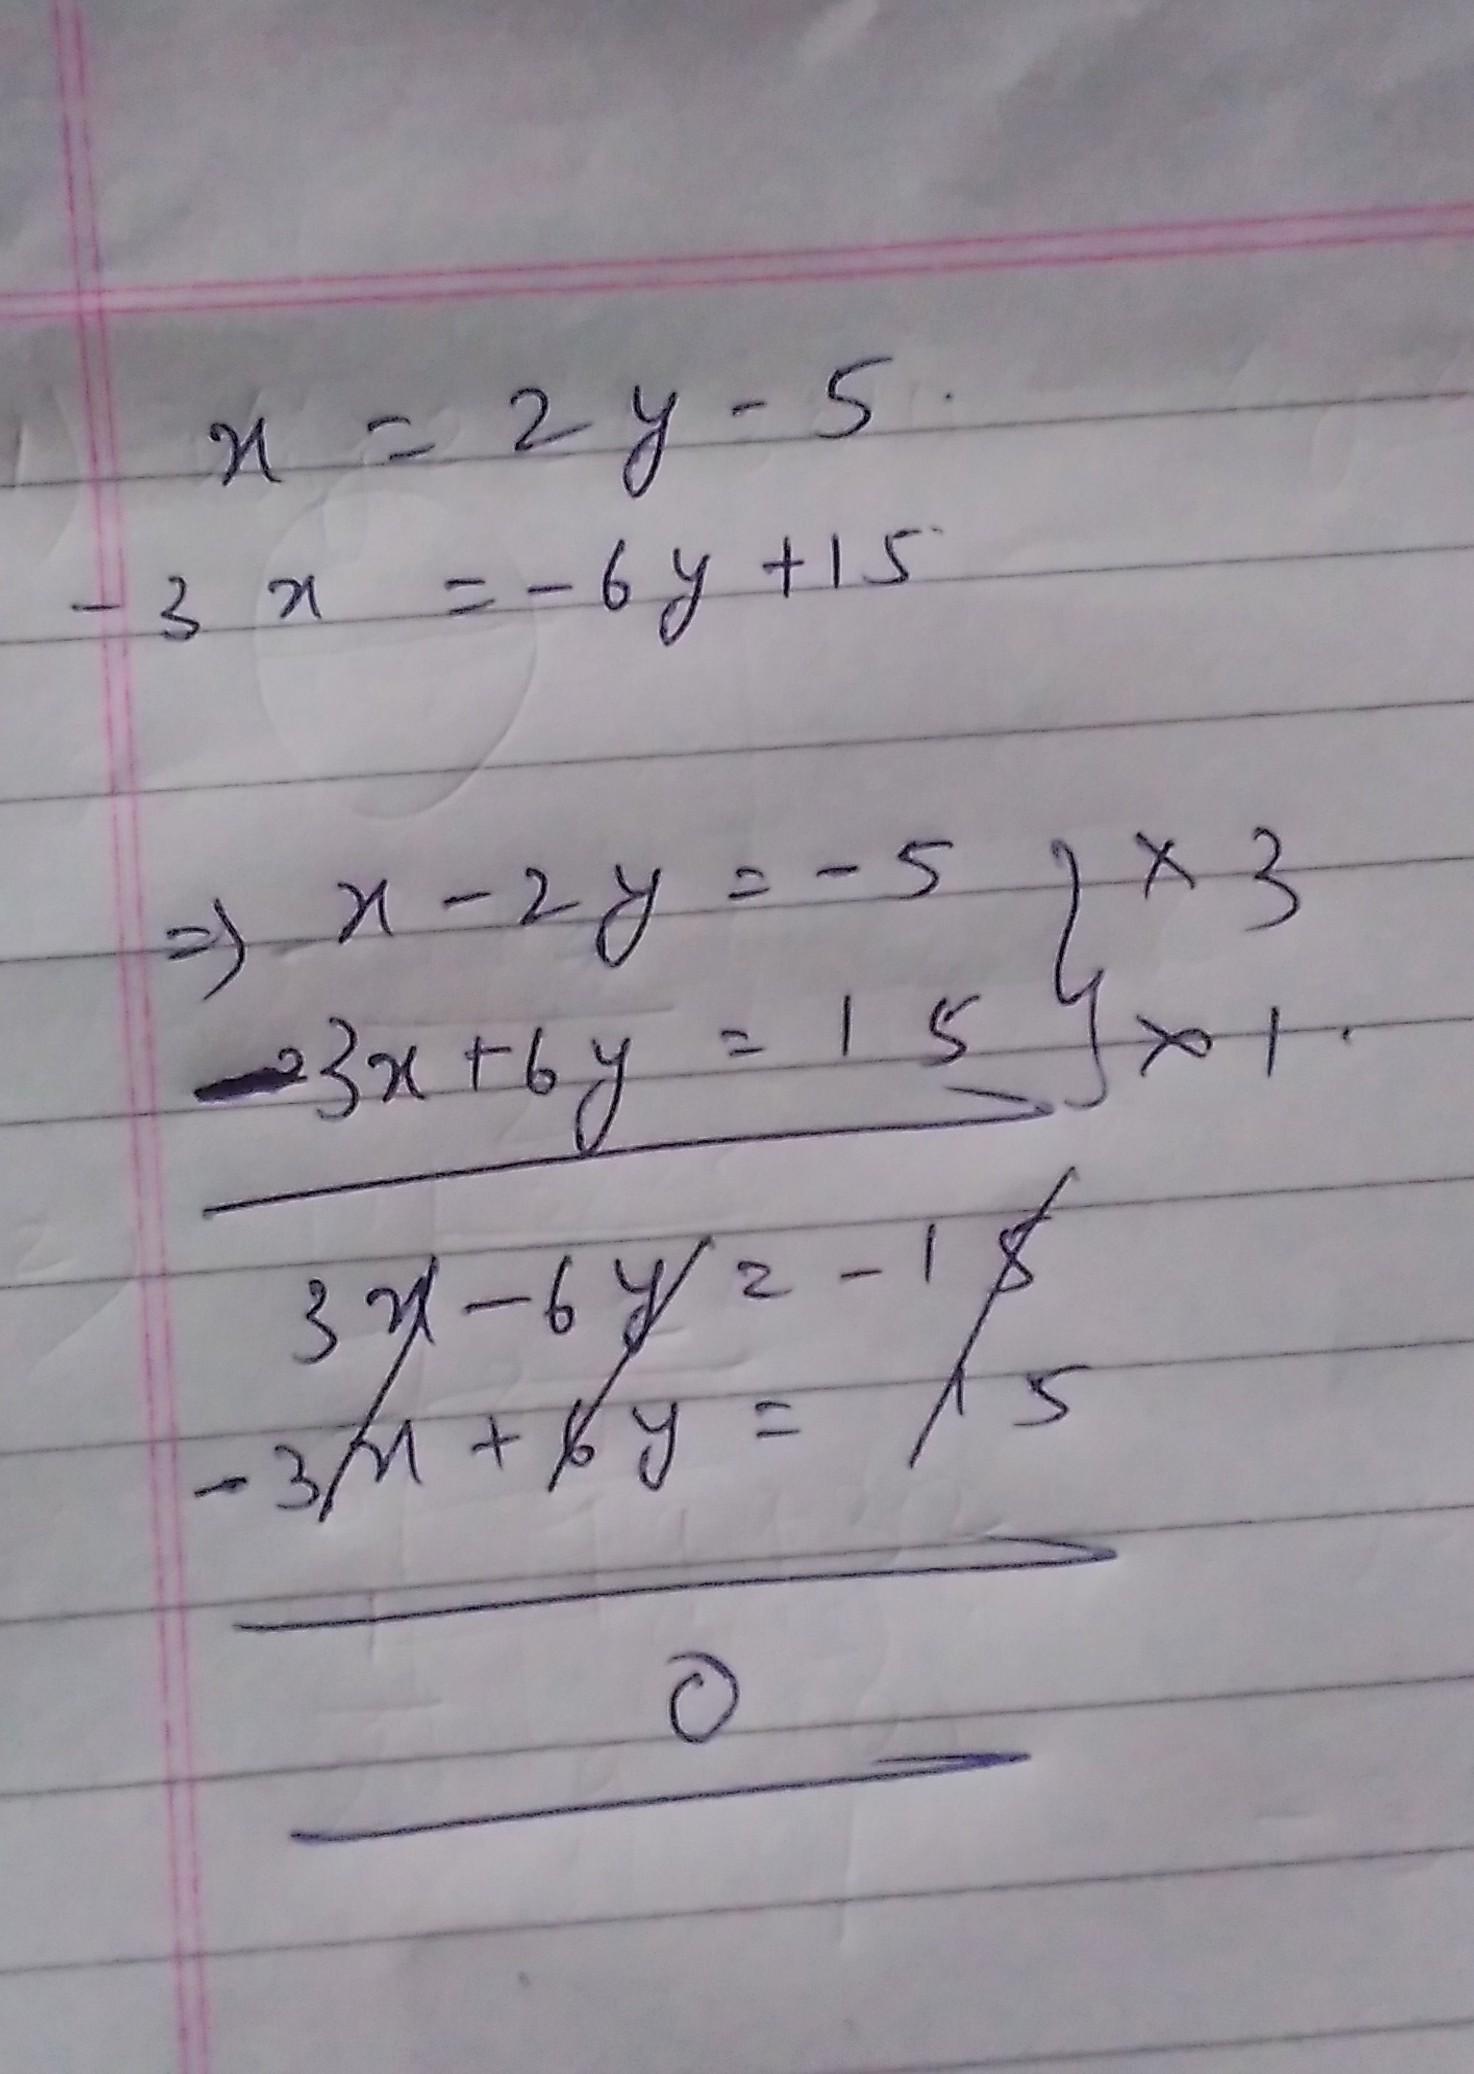 x = 2y - 5.
-3x = -6y + 15
=> x - 2y = -5 } × 3
-3x + 6y = 15 } × 1.
3x - 6y = -15
-3x + 6y = 15
0